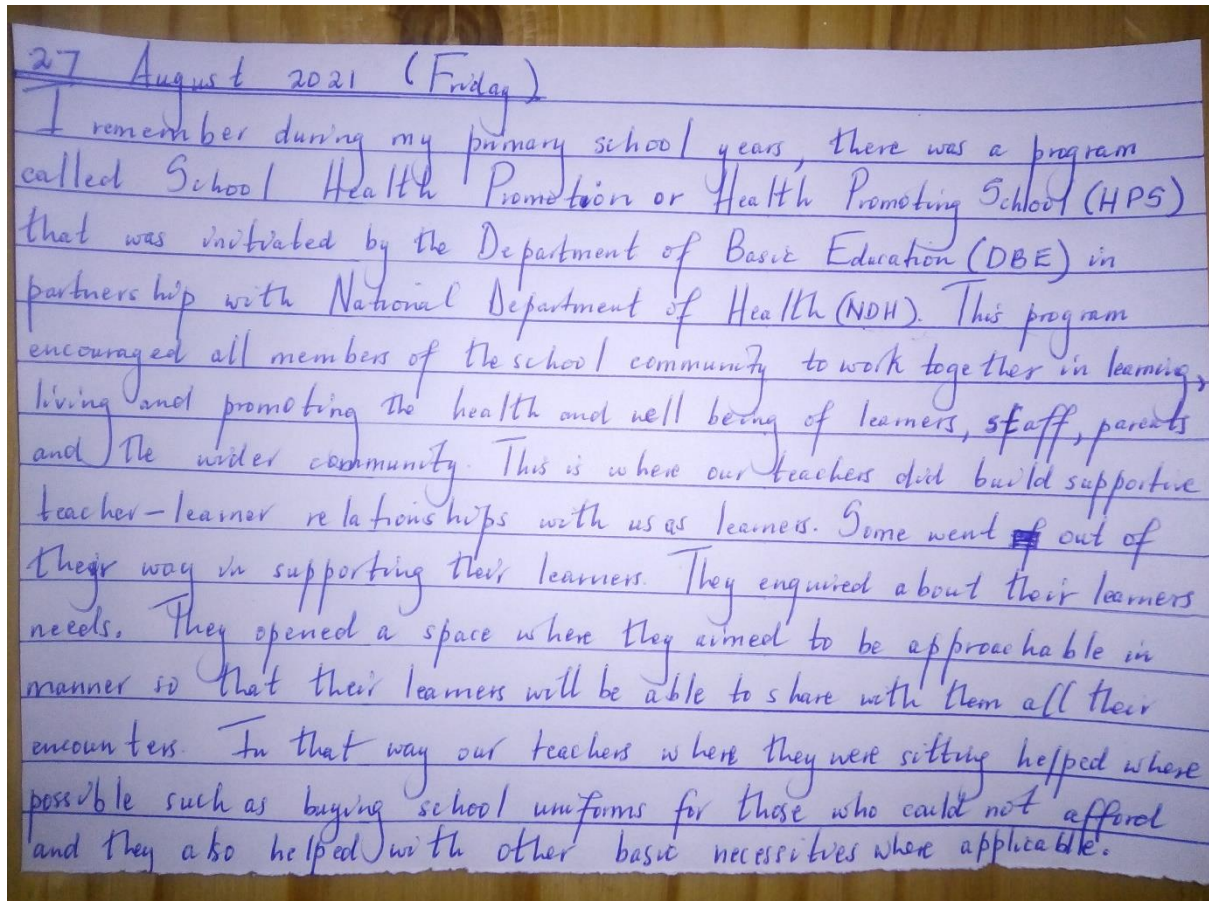 27 August 2021 (Friday)
I remember during my primary school years, there was a program
called School Health Promotion or Health Promoting School (HPS)
that was initiated by the Department of Basic Education (DBE) in
partnership with National Department of Health (NDH). This program
encouraged all members of the school community to work together in learning,
living and promoting the health and well being of learners, staff, parents
and the wider community. This is where our teachers did build supportive
teacher-learner relationships with us as learners. Some went out of
their way in supporting their learners. They enquired about their learners
needs. They opened a space where they aimed to be approachable in
manner so that their learners will be able to share with them all their
encounters. In that way our teachers where they were sitting helped where
possible such as buying school uniforms for those who could not afford
and they also helped with other basic necessities where applicable.